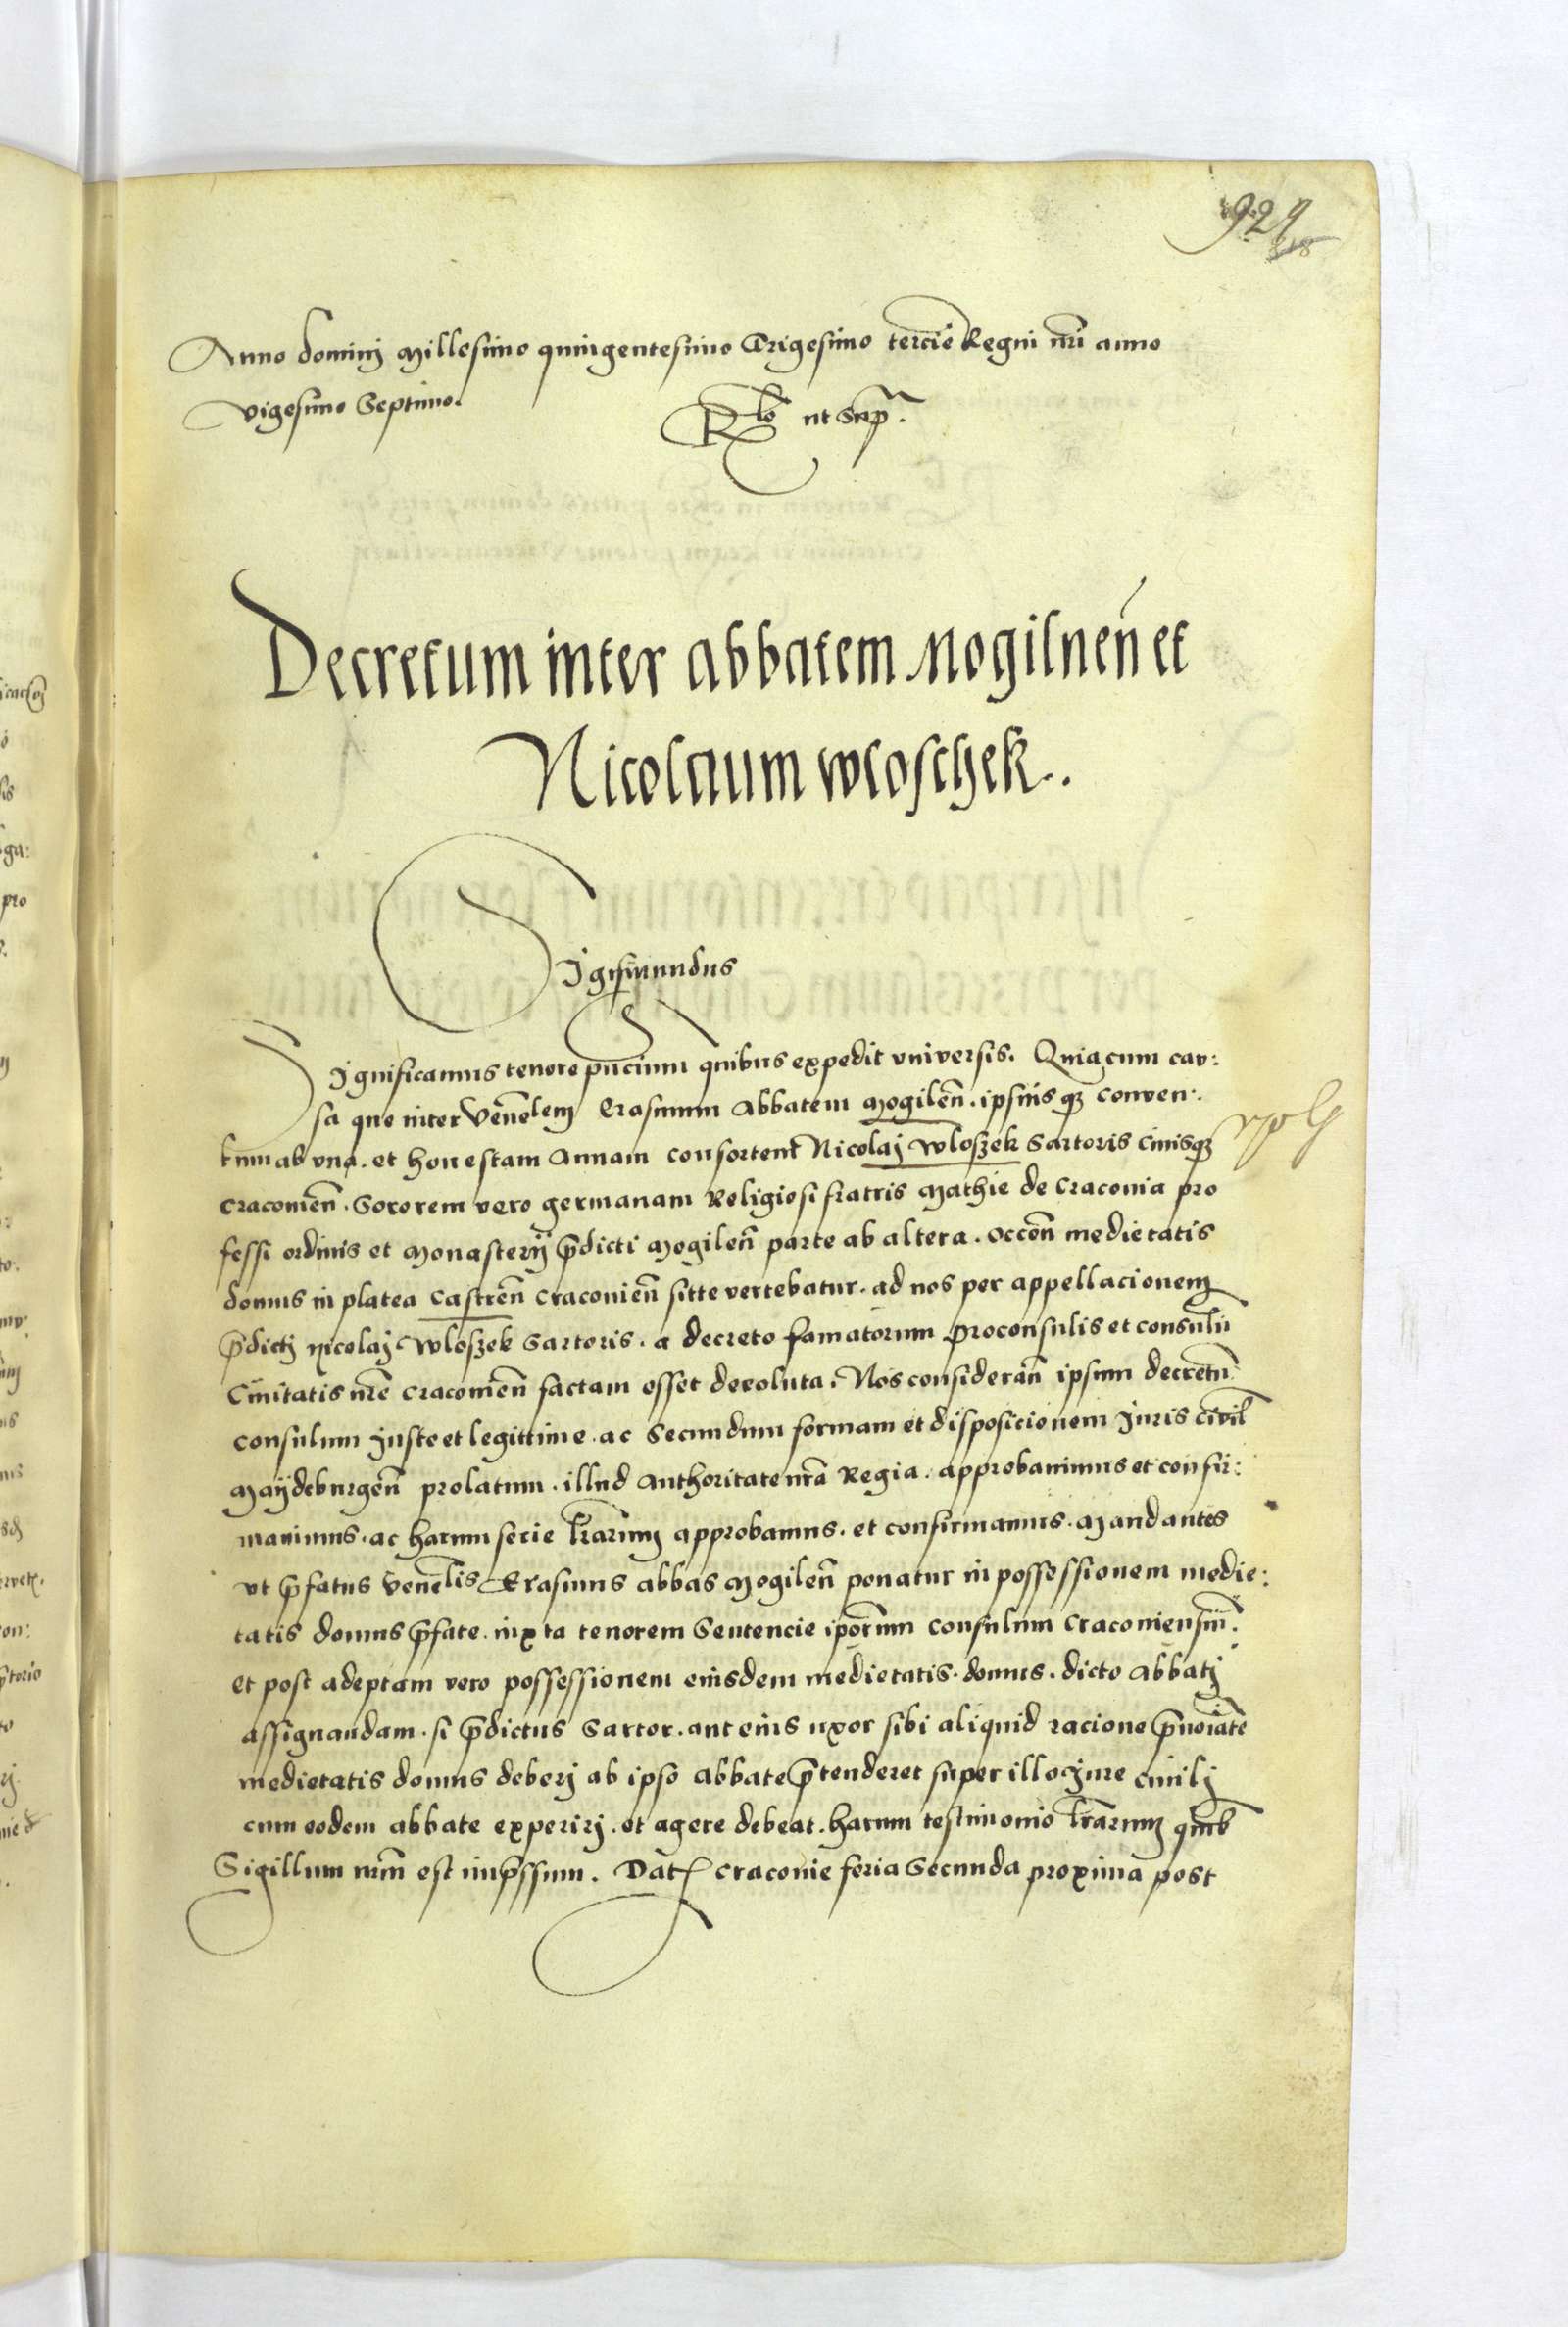 929
Anno dominj Millesimo quingentesimo Trigesimo tercio Regni nri anno
vigesimo Septimo.
Rlo ut Supra.
Decretum inter abbatem Mogilnen̄ et
Nicolaum wloschek..
Sigismundus
Significamus tenore pn̄cium quibus expedit vniversis. Quia cum cav:
sa que inter Venēlem Erasmum Abbatem Mogilen̄. ipsiusqꝫ conven:
tum ab vna. et honestam Annam consortem Nicolaj Wloszek Sartoris Civisqꝫ
Cracovien̄. Sororem vero germanam Religiosi fratris Mathie de Cracovia pro
fessi ordinis et Monasterij p̄dicti Mogilen̄ parte ab altera. occōn medietatis
domus in platea Castren̄ Cracovien̄ site vertebatur. ad nos per appellacionem
p̄dictj Nicolaj Wloszek Sartoris. a decreto famatorum proconsulis et consulū
Civitatis nrē Cracovien̄ factam esset devoluta. Nos considerān ipsum decretū
consulum Juste et legittime. ac Secundum formam et disposicionem Juris civil
Maydeburgen̄ prolatum. illud Authoritate nrā Regia. approbavimus et confir:
mavimus. ac harum serie lrārum approbamus. et confirmamus. Mandantes
vt p̄fatus Venēlis Erasmus abbas Mogilen̄ ponatur in possessionem medie:
tatis domus p̄fate. iuxta tenorem Sentencie ip̄orum consulum Cracoviensiū.
et post adeptam vero possessionem eiusdem medietatis. domus. dicto Abbatj
assignandam. si p̄dictus Sartor. aut eius uxor sibi aliquid racione p̄noīate
medietatis domus deberj ab ipso Abbate p̄tenderet super illo jure civilj
cum eodem abbate experirj. et agere debeat. harum testimonio lrārum quib
Sigillum nrm̄ est imp̄ssum. Dat Cracovie feria Secunda proxima post